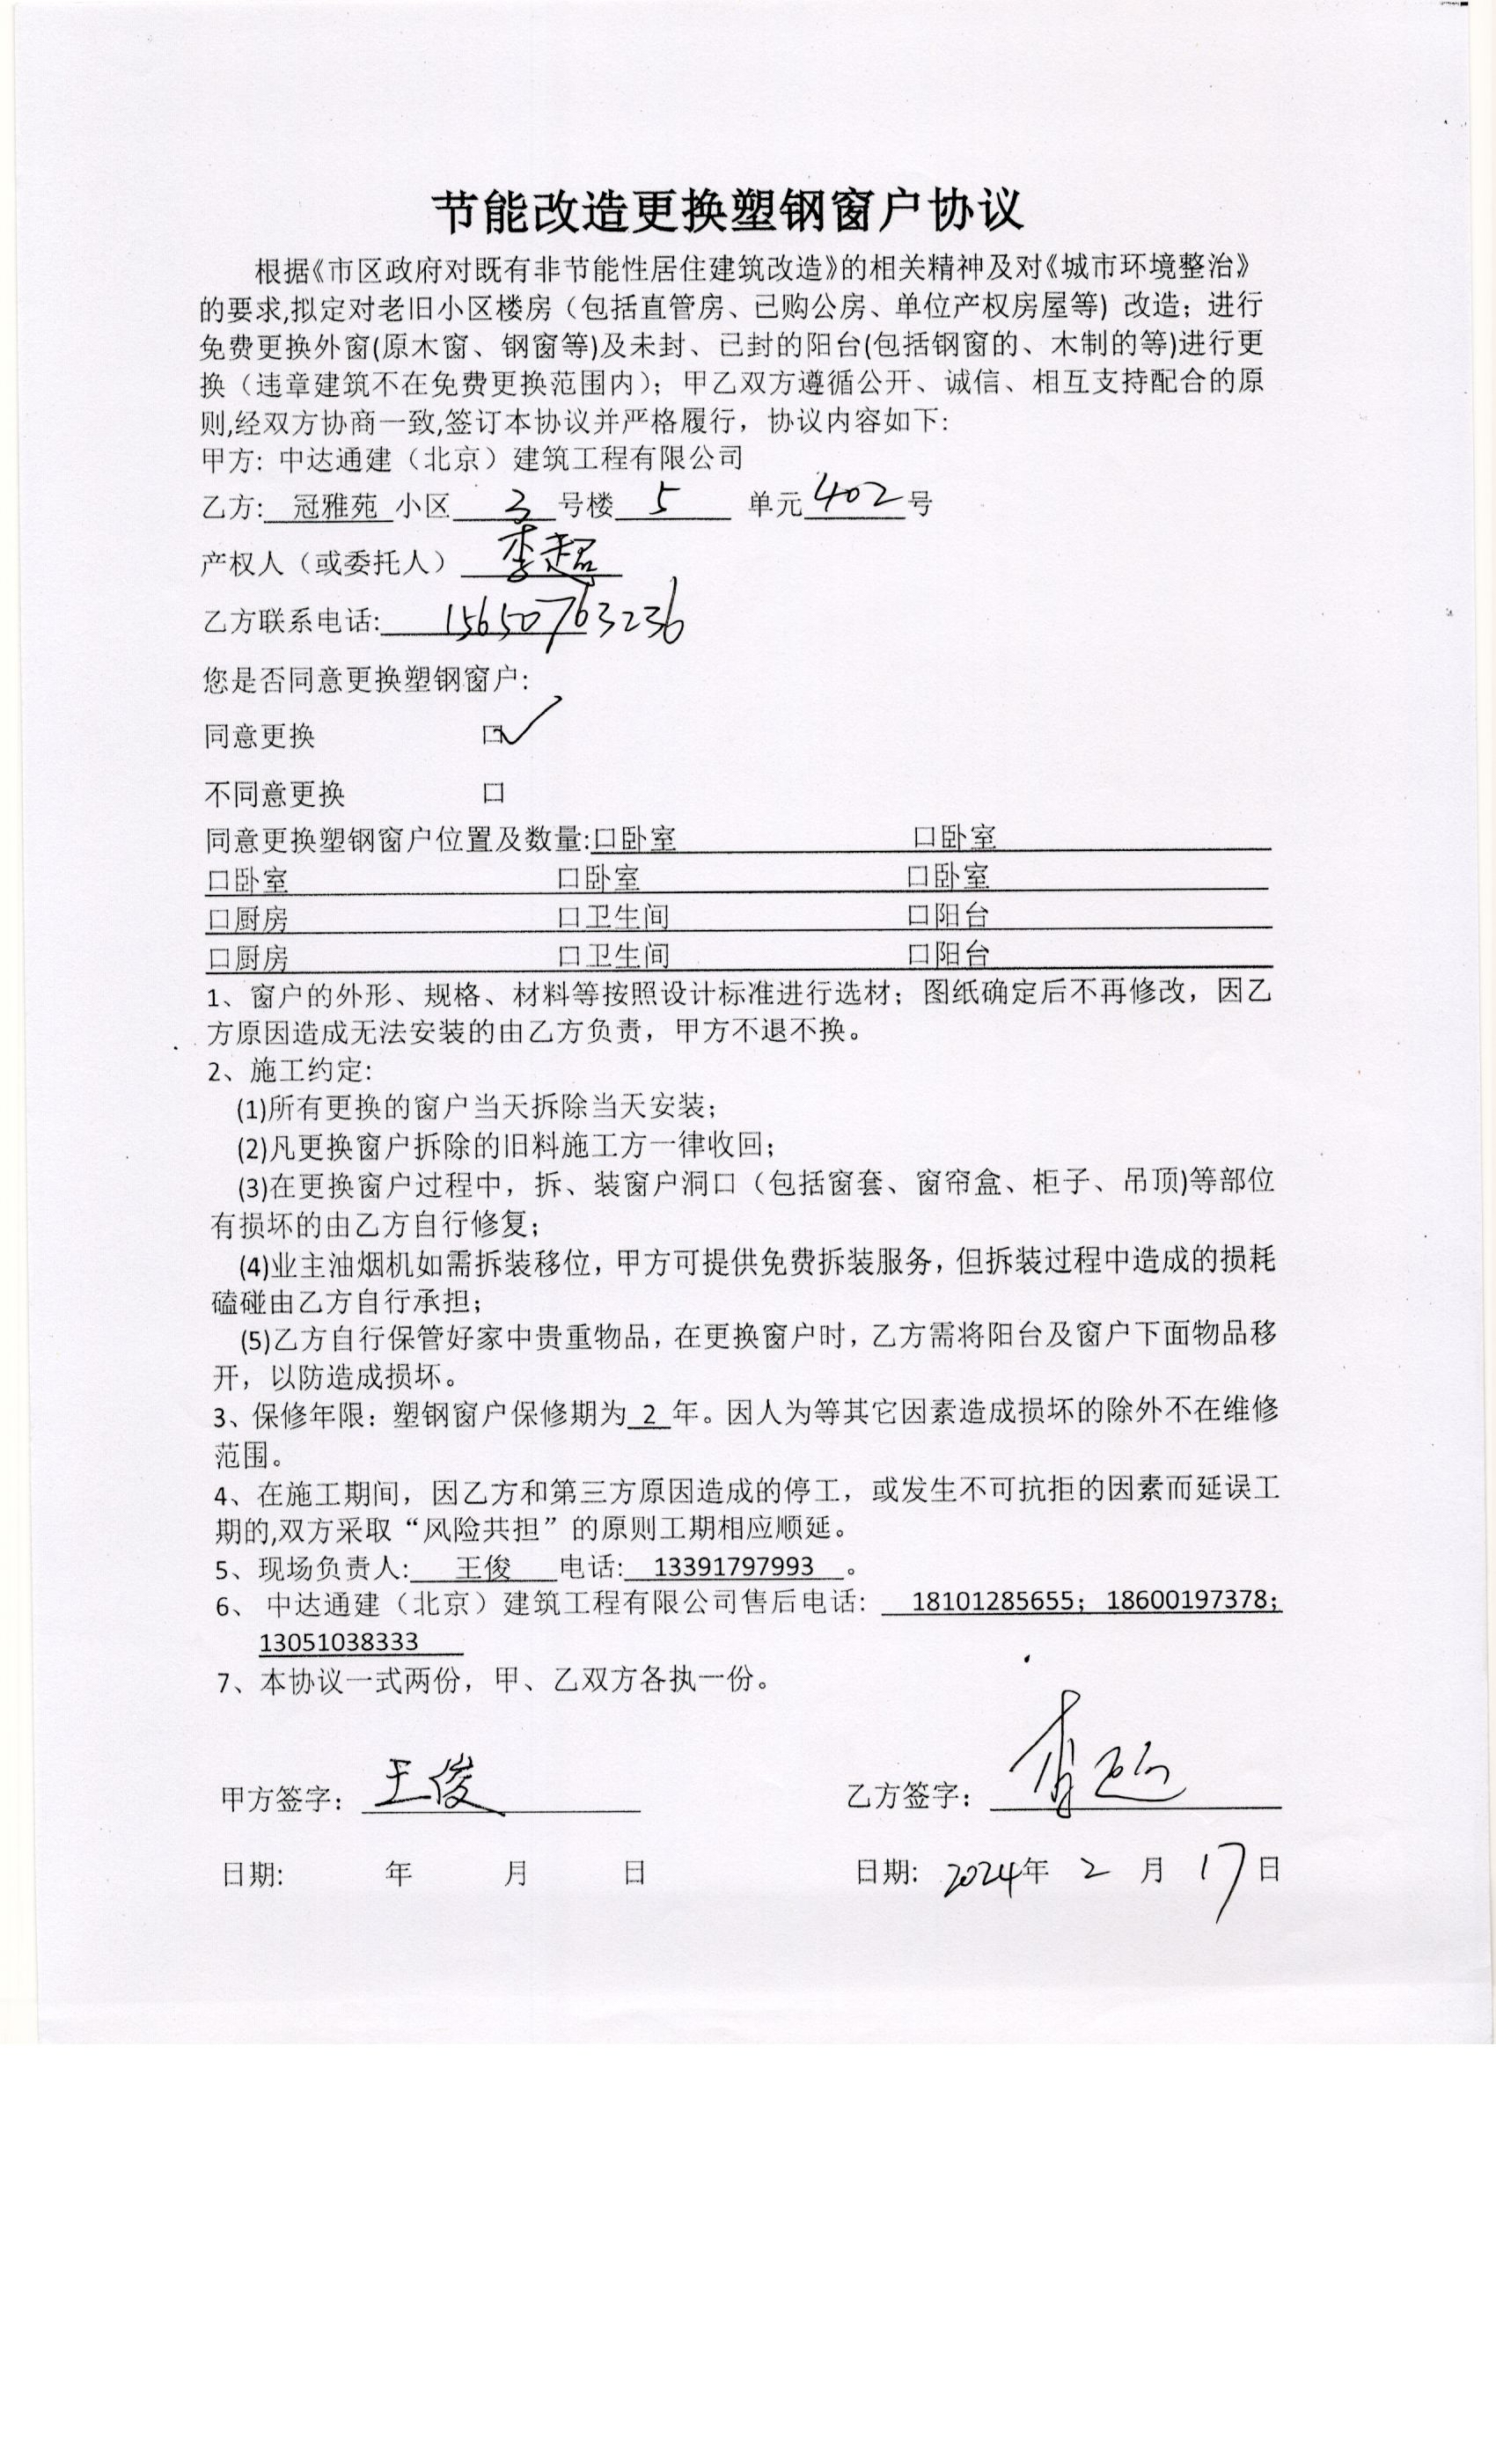 节能改造更换塑钢窗户协议
根据《市区政府对既有非节能性居住建筑改造》的相关精神及对《城市环境整治》
的要求,拟定对老旧小区楼房（包括直管房、已购公房、单位产权房屋等）改造；进行
免费更换外窗(原木窗、钢窗等)及未封、已封的阳台(包括钢窗的、木制的等)进行更
换（违章建筑不在免费更换范围内）；甲乙双方遵循公开、诚信、相互支持配合的原
则,经双方协商一致,签订本协议并严格履行，协议内容如下:
甲方: 中达通建（北京）建筑工程有限公司
乙方: 冠雅苑 小区 3 号楼 5 单元 402 号
产权人（或委托人） 李超
乙方联系电话: 15650763236
您是否同意更换塑钢窗户:
同意更换 口✓
不同意更换 口
同意更换塑钢窗户位置及数量:口卧室 口卧室
口卧室 口卧室 口卧室
口厨房 口卫生间 口阳台
口厨房 口卫生间 口阳台
1、窗户的外形、规格、材料等按照设计标准进行选材；图纸确定后不再修改，因乙
方原因造成无法安装的由乙方负责，甲方不退不换。
2、施工约定:
(1)所有更换的窗户当天拆除当天安装；
(2)凡更换窗户拆除的旧料施工方一律收回；
(3)在更换窗户过程中，拆、装窗户洞口（包括窗套、窗帘盒、柜子、吊顶)等部位
有损坏的由乙方自行修复；
(4)业主油烟机如需拆装移位，甲方可提供免费拆装服务，但拆装过程中造成的损耗
磕碰由乙方自行承担；
(5)乙方自行保管好家中贵重物品，在更换窗户时，乙方需将阳台及窗户下面物品移
开，以防造成损坏。
3、保修年限：塑钢窗户保修期为 2 年。因人为等其它因素造成损坏的除外不在维修
范围。
4、在施工期间，因乙方和第三方原因造成的停工，或发生不可抗拒的因素而延误工
期的,双方采取“风险共担”的原则工期相应顺延。
5、现场负责人: 王俊 电话: 13391797993 。
6、 中达通建（北京）建筑工程有限公司售后电话: 18101285655；18600197378；
13051038333
7、本协议一式两份，甲、乙双方各执一份。
甲方签字： 王俊 乙方签字： 李超
日期: 年 月 日 日期: 2024年 2 月 17日